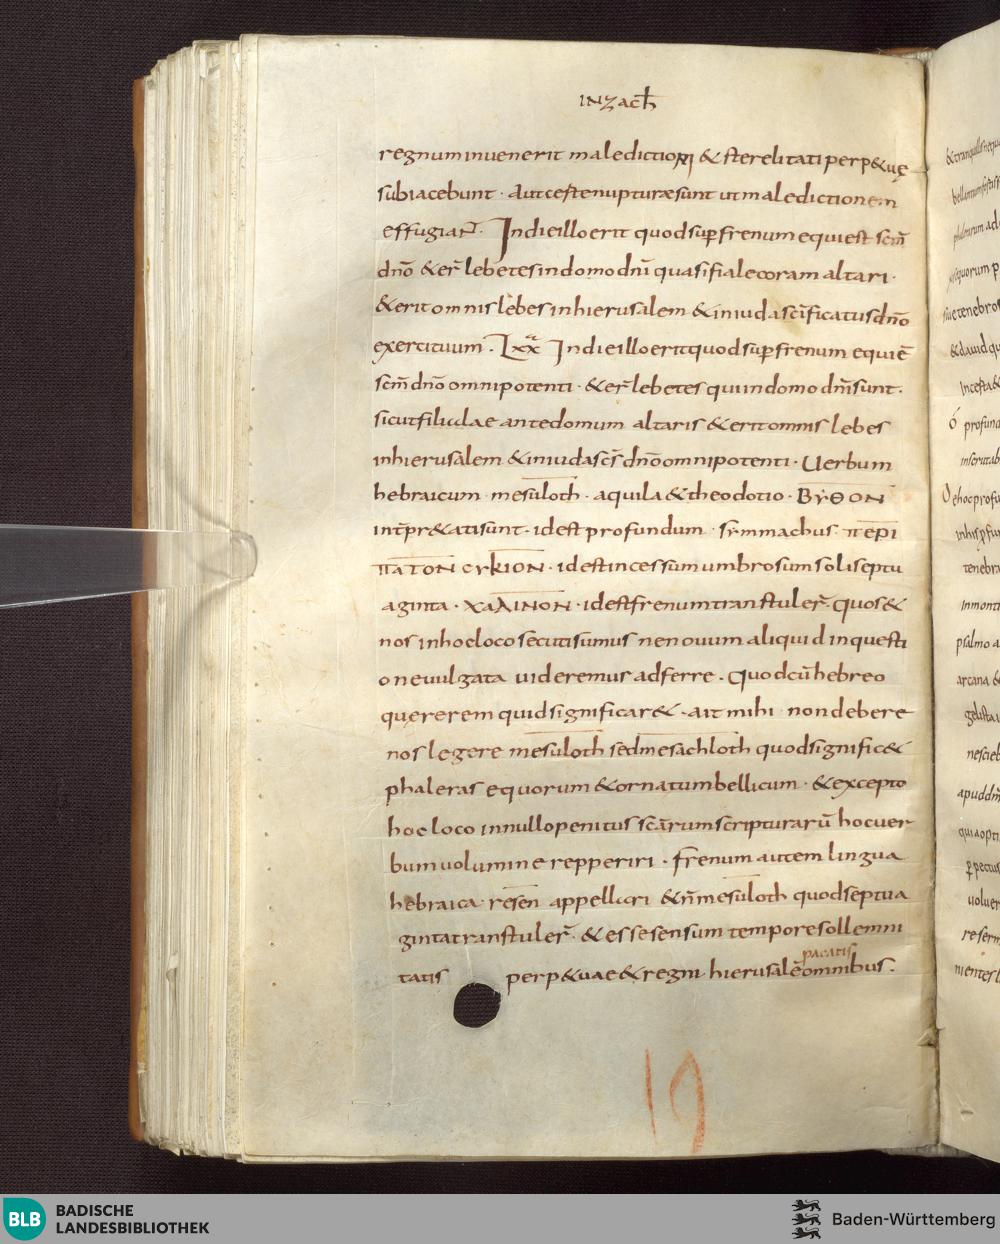 IN Zach̄
regnum inuenerit maledictioni & sterelitati perp&uę
subiacebunt · Aut certe nupturae sunt ut maledictionem
effugiaNT̄ · In die illo erit quod sup̄ frenum equi est scm̄
dnō & er̄ lebetes in domo dnī quasi fialecoram altari ·
& erit omnis lebes in hierusalem & in iuda scīficatus dnō
exercituum · Lxx In die illo erit quod sup̄ frenum equi ē
scm̄ dnō omnipotenti · & er̄ lebetes qui in domo dnī sunt ·
sicut filiolae ante domum altaris & erit omnis lebes
in hierusalem & in iuda scs̄ dnō omnipotenti · Uerbum
hebraicum mesuloth · aquila & theodotio · ΒΥΘΟΝ
int̄pr&ati sunt · id est profundum · symmachus · ΠΕΡΙ
ΠΑΤΟΝ CΥΚΙΟΝ · id est incessum umbrosum soli septu
aginta · ΧΑΛΙΝΟΝ · id est frenum transtuler̄ · Quos &
nos in hoc loco secuti sumus ne nouum aliquid in questi
one uulgata uideremur adferre · Quod cū hebreo
quererem quid significar& · ait mihi non debere
nos legere mesuloth sed mesachloth quod signific&
phaleras equorum & ornatum bellicum · & excepto
hoc loco in nullo penitus scārum scripturarū hoc uer
bum uolumine repperiri · frenum autem lingua
hebraica resen appellari & n̄ mesuloth quod septua
ginta transtuler̄ · & esse sensum tempore sollemni
pacatis
tatis perp&uae & regni hierusalē omnibus ·
19
& tranquillis
profund
tenebra
in monti
psalmo a
arcana &
nescieb
apud dm̄
uoluer
BLB BADISCHE
LANDESBIBLIOTHEK
Baden-Württemberg